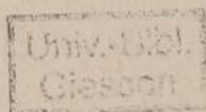 Univ.-Bibl.
Giessen